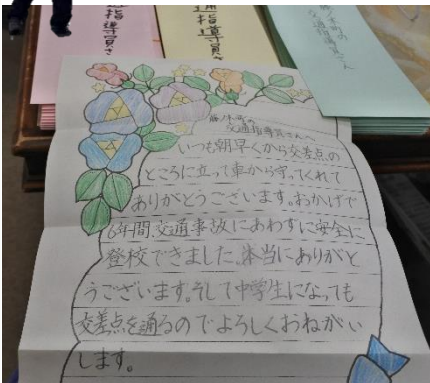 指導員さ
指導員さ
交通指導員さん
藤ノ木町の
交通指導員さんへ
いつも朝早くから交差点の
ところに立って車から守ってくれて
ありがとうございます。おかげで
6年間、交通事故にあわずに安全に
登校できました。本当にありがと
うございます。そして中学生になっても
交差点を通るのでよろしくおねがい
します。